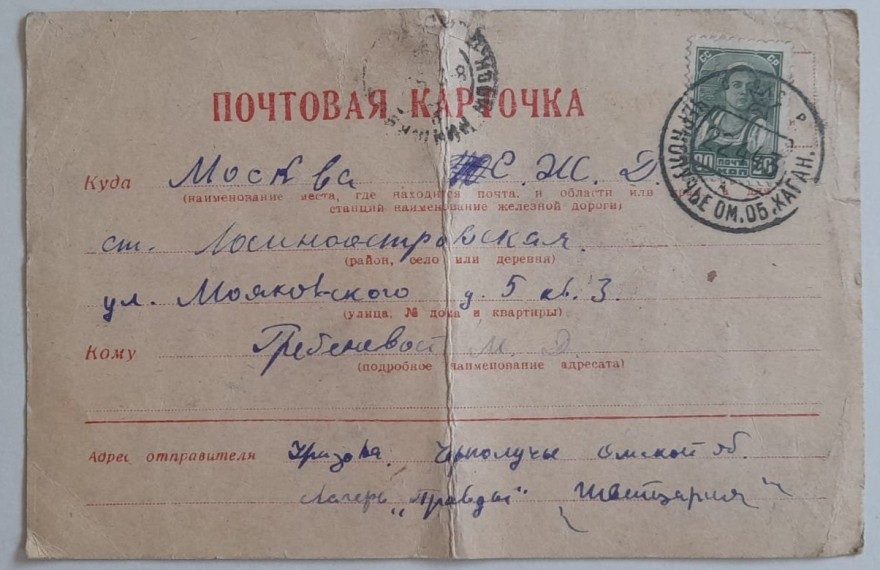 ПОЧТОВАЯ КАРТОЧКА
СССР
20 ПОЧТА 20
КОП
ЧЕРНОЛУЧЬЕ ОМ. ОБ. ХАГАН.
Куда Москва С. Ж. Д
(наименование места, где находится почта, и области или
станции наименование железной дороги)
ст. Лосиноостровская.
(район, село или деревня)
ул. Мояковского д. 5 кв. 3.
(улица, № дома и квартиры)
Кому М. Д.
(подробное наименование адресата)
Адрес отправителя Уразова, Чернолучье Омской об.
Лагерь „Правды" „Швейцария"